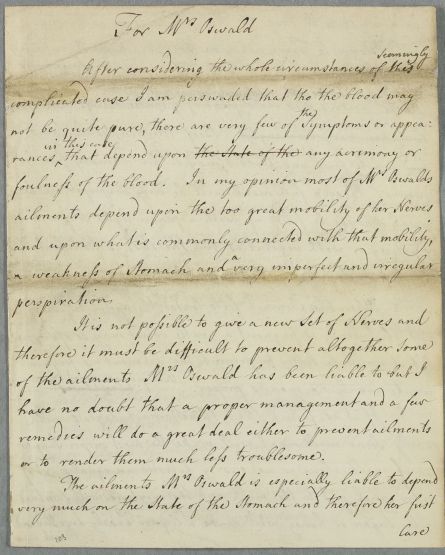 For Mrs Oswald
After considering the whole circumstances of this seemingly
complicated case I am perswaded that tho the blood may
not be quite pure, there are very few of the Symptoms or appea:
rances in this case that depend upon the State of the any acrimony or
foulness of the blood. In my opinion most of Mrs Oswalds
ailments depend upon the too great mobility of her Nerves
and upon what is commonly connected with that mobility,
a weakness of Stomach and a very imperfect and irregular
perspiration.
It is not possible to give a new Set of Nerves and
therefore it must be difficult to prevent altogether some
of the ailments Mrs Oswald has been liable to but I
have no doubt that a proper management and a few
remedies will do a great deal either to prevent ailments
or to render them much less troublesome.
The ailments Mrs Oswald is especially liable to depend
very much on the State of the Stomach and therefore her first
Care